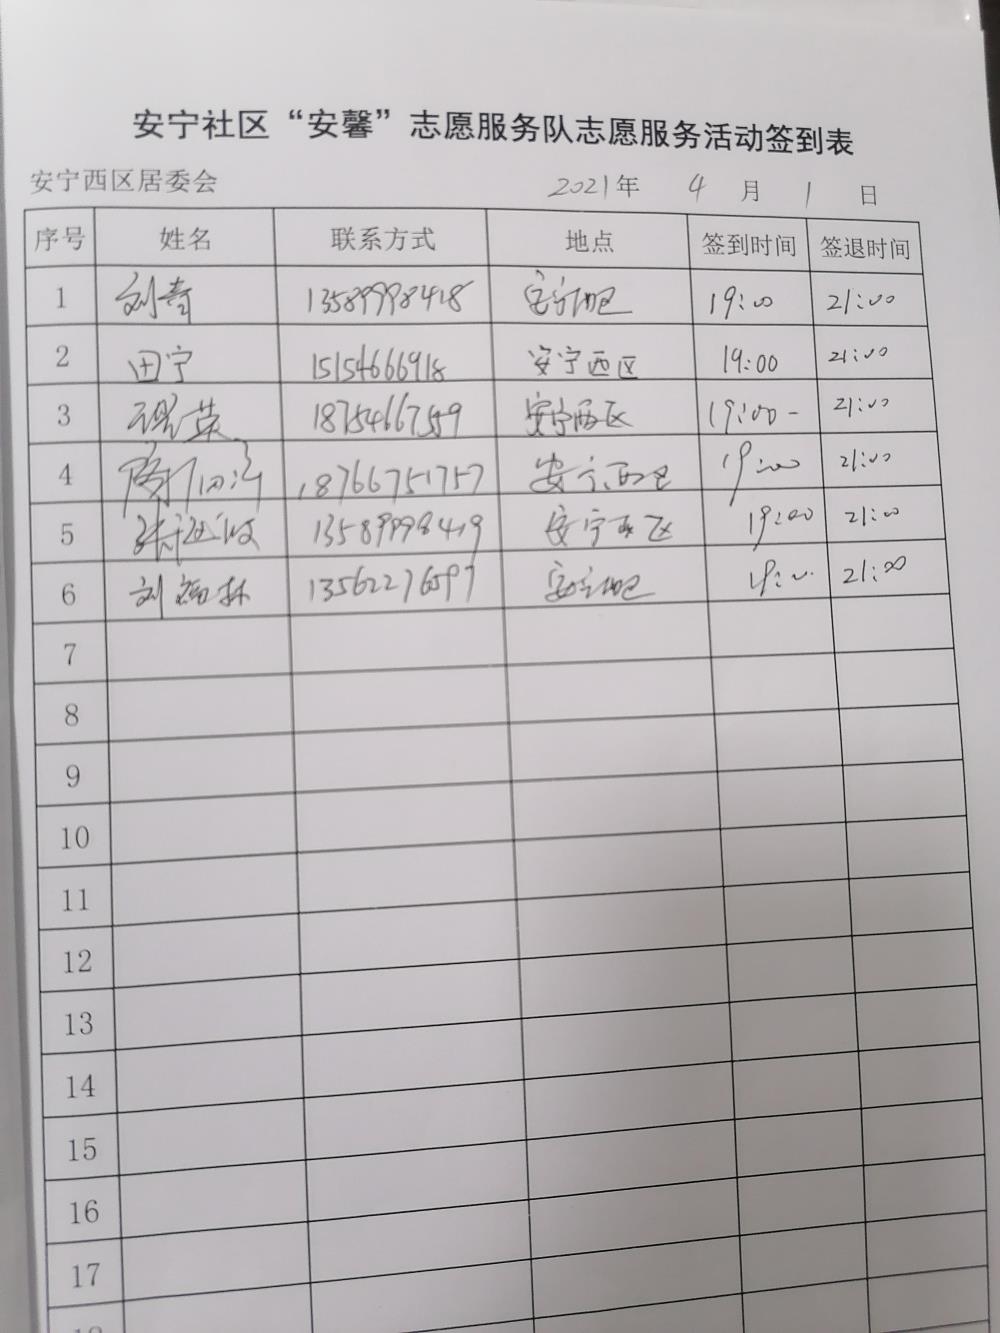 安宁社区“安馨”志愿服务队志愿服务活动签到表
安宁西区居委会 2021年 4 月 1 日
序号 姓名 联系方式 地点 签到时间 签退时间
1 刘青 13589998428 安宁西区 19:00 21:00
2 田宁 15154666918 安宁西区 19:00 21:00
3 荣 18754667559 安宁西区 19:00- 21:00
4 18766751757 安宁西区 19:00 21:00
5 张 13589998419 安宁西区 19:00 21:00
6 刘福林 13562276597 安宁西区 19:00 21:00
7
8
9
10
11
12
13
14
15
16
17